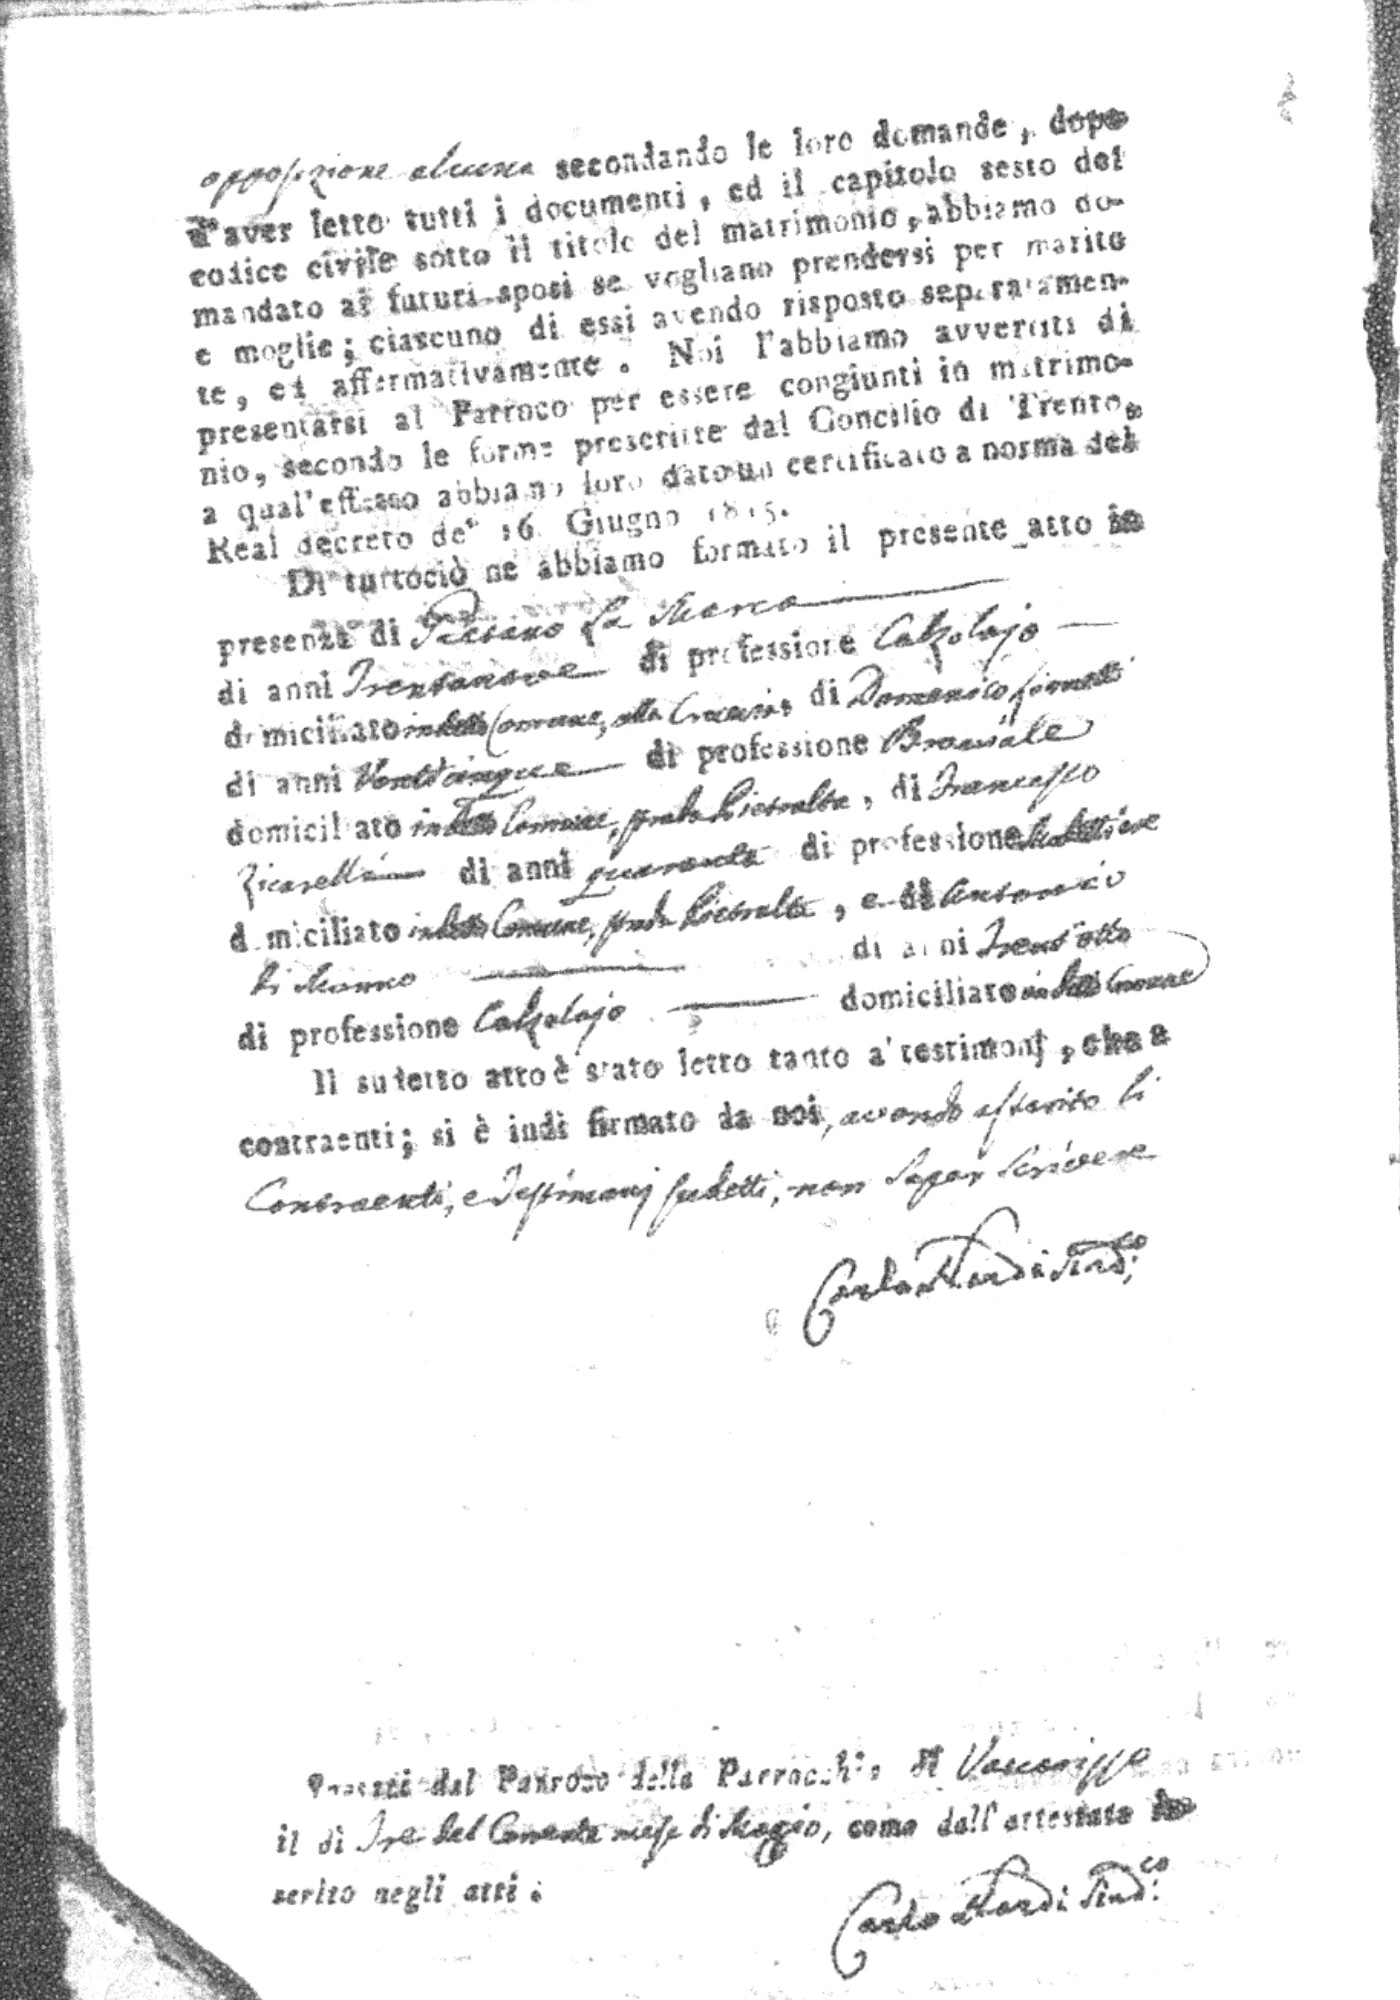 opposizione alcuna secondando le loro domande, dopo
d'aver letto tutti i documenti, ed il capitolo sesto del
codice civile sotto il titolo del matrimonio, abbiamo do-
mandato ai futuri sposi se vogliano prendersi per marito
e moglie; ciascuno di essi avendo risposto separatamen-
te, ed affermativamente. Noi l'abbiamo avvertiti di
presentarsi al Parroco per essere congiunti in matrimo-
nio, secondo le forme prescritte dal Concilio di Trento,
a qual'effetto abbiamo loro dato un certificato a norma del
Real decreto de' 16 Giugno 1815.
Di tuttociò ne abbiamo formato il presente atto in
presenza di La Marca
di anni Trentanove di professione Calzolajo
domiciliato in detto Comune, alla di Domenico
di anni Venticinque di professione Bracciale
domiciliato in detto Comune, strada Pietralta, di Francesco
Zicarelli di anni quaranta di professione Mulattiere
domiciliato in detto Comune, strada Pietralta, e di Antonio
di Manno di anni Trent'otto
di professione Calzolajo domiciliato in detto Comune
Il sudetto atto è stato letto tanto a' testimonj, che a
contraenti; si è indi firmato da noi, avendo asserito li
Contraenti, e Testimonj sudetti, non saper scrivere
Carlo Sind.co
dal Parroco della Parrocchia di Vaccarizzo
il di Tre del Corrente mese di Maggio, come dall'attestato in
serito negli atti.
Carlo Sind.co